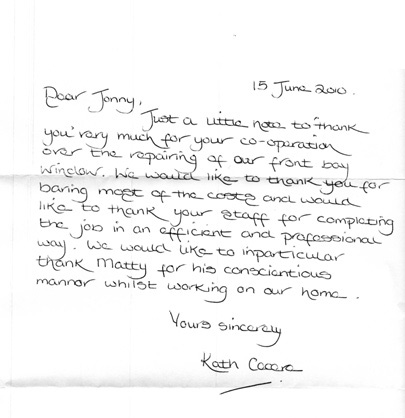 15 June 2010.
Dear Jonny,
Just a little note to thank
you very much for your co-operation
over the repairing of our front bay
window. We would like to thank you for
baring most of the costs and would
like to thank your staff for completing
the job in an efficient and professional
way. We would like to inparticular
thank Matty for his conscientious
mannor whilst working on our home.
Yours sincerely
Kath